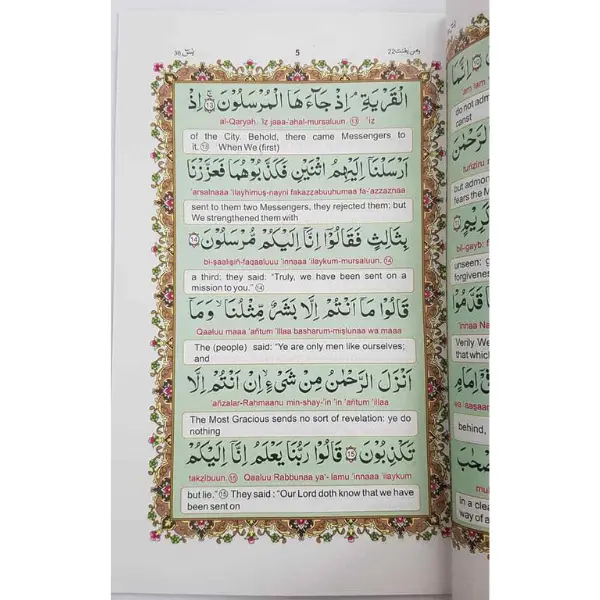 یٰسٓ 36
5
ومن یقنت 22
الْقَرْیَةِ ۘ اِذْ جَآءَهَا الْمُرْسَلُوْنَ ۝١٣ اِذْ
al-Qaryah. 'iz jaaa-'ahal-mursaluun. ⑬ 'iz
of the City. Behold, there came Messengers to
it.⑬ When We (first)
اَرْسَلْنَاۤ اِلَیْهِمُ اثْنَیْنِ فَكَذَّبُوْهُمَا فَعَزَّزْنَا
'arsalnaaa 'ilayhimuṣ-nayni fakazzabuuhumaa fa-'azzaznaa
sent to them two Messengers, they rejected them: but
We strengthened them with
بِثَالِثٍ فَقَالُوْۤا اِنَّاۤ اِلَیْكُمْ مُّرْسَلُوْنَ ۝١٤
bi-ṣaaliṣiñ-faqaaluuu 'innaaa 'ilaykum-mursaluun. ⑭
a third: they said: "Truly, we have been sent on a
mission to you."⑭
قَالُوْا مَاۤ اَنْتُمْ اِلَّا بَشَرٌ مِّثْلُنَا ۙ وَمَاۤ
Qaaluu maaa 'añtum 'illaa basharum-miṣlunaa wa maaa
The (people) said: "Ye are only men like ourselves;
and
اَنْزَلَ الرَّحْمٰنُ مِنْ شَیْءٍ ۙ اِنْ اَنْتُمْ اِلَّا
'añzalar-Rahmaanu min-shay-'in 'in 'añtum 'illaa
The Most Gracious sends no sort of revelation: ye do
nothing
تَكْذِبُوْنَ ۝١٥ قَالُوْا رَبُّنَا یَعْلَمُ اِنَّاۤ اِلَیْكُمْ
takzibuun.⑮ Qaaluu Rabbunaa ya'- lamu 'innaaa 'ilaykum
but lie."⑮ They said : "Our Lord doth know that we have
been sent on
اِنَّمَا
do not adm
but admon
fears the M
كَرِیْمٍ
bil-gayb:
unseen; g
forgiveness
قَدَّمُوْا
'innaa Na
Verily We
that which
اِمَامٍ
behind,
in a clea
way of a